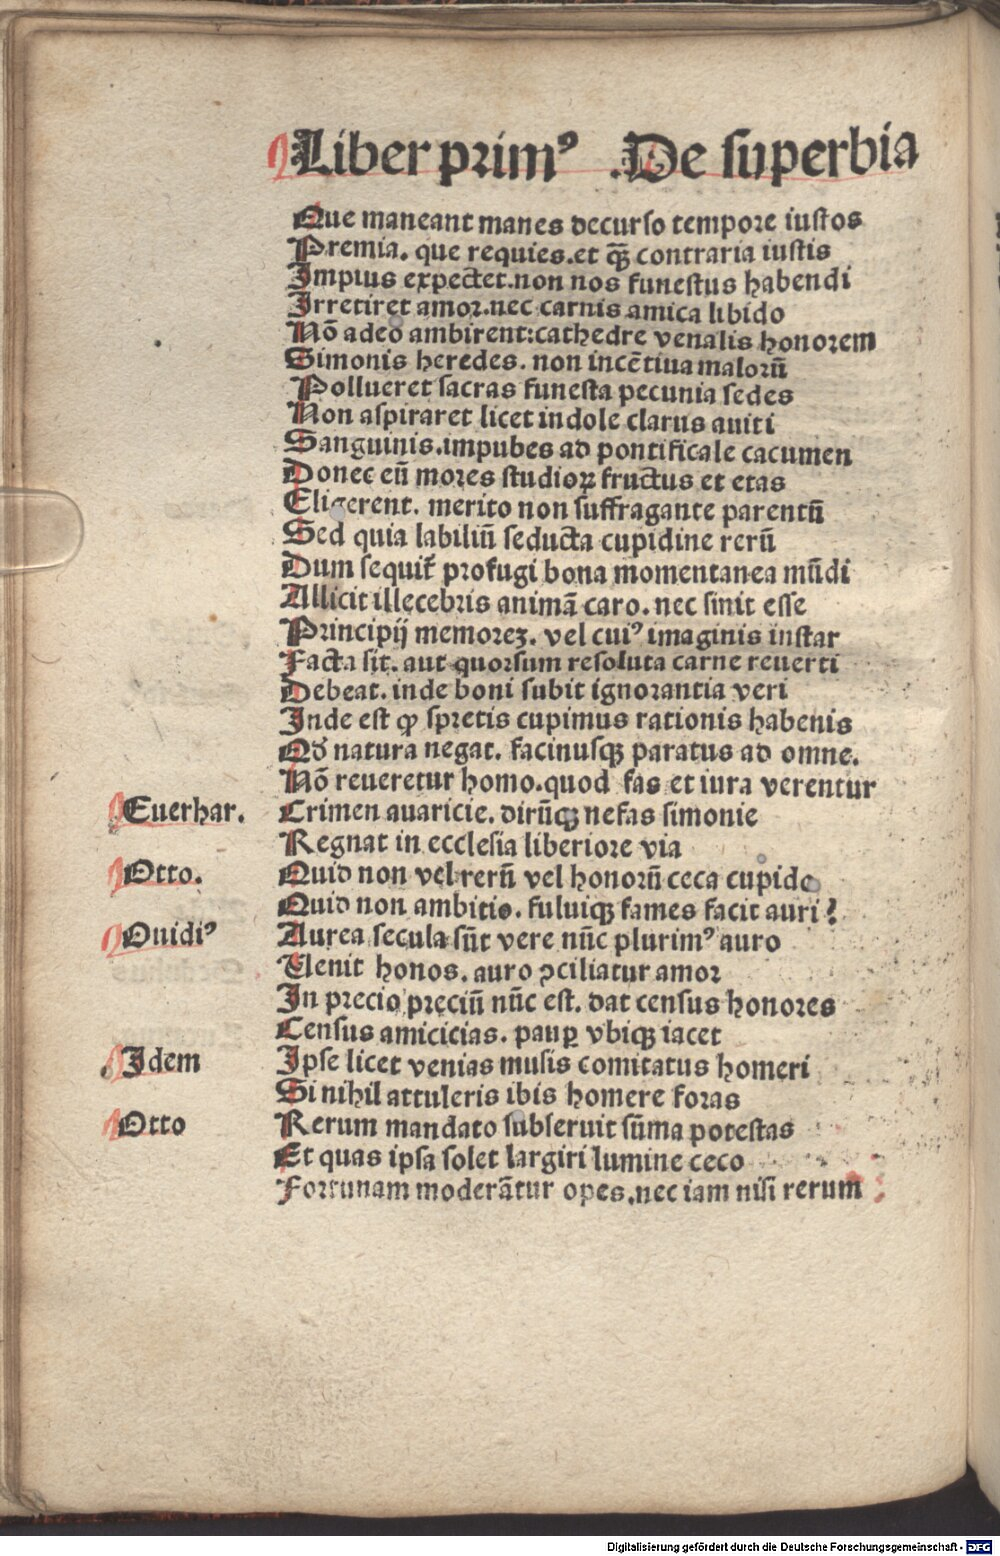 Liber primꝰ .De superbia
Que maneant manes decurso tempore iustos
Premia. que requies. et q̄ꝫ contraria iustis
Impius expectet. non nos funestus habendi
Irretiret amor. nec carnis amica libido
Nō adeo ambirent: cathedre venalis honorem
Simonis heredes. non incētiua malorū
Pollueret sacras funesta pecunia sedes
Non aspiraret licet indole clarus auiti
Sanguinis. impubes ad pontificale cacumen
Donec eū mores studioꝝ fructus et etas
Eligerent. merito non suffragante parentū
Sed quia labiliū seducta cupidine rerū
Dum sequit᷑ profugi bona momentanea mūdi
Allicit illecebris animā caro. nec sinit esse
Principij memoreꝫ. vel cuiꝰ imaginis instar
Facta sit. aut quorsum resoluta carne reuerti
Debeat. inde boni subit ignorantia veri
Inde est ꝙ spretis cupimus rationis habenis
Qđ natura negat. facinusqꝫ paratus ad omne.
Nō reueretur homo. quod fas et iura verentur
Euerhar. Crimen auaricie. dirūqꝫ nefas simonie
Regnat in ecclesia liberiore via
Otto. Quid non vel rerū vel honorū ceca cupido
Quid non ambitio. fuluiqꝫ fames facit auri?
Ouidiꝰ Aurea secula sūt vere nūc plurimꝰ auro
Uenit honos. auro ꝯciliatur amor
In precio preciū nūc est. dat census honores
Census amicicias. paup̲ vbiqꝫ iacet
Idem Ipse licet venias musis comitatus homeri
Si nihil attuleris ibis homere foras
Otto Rerum mandato subseruit sūma potestas
Et quas ipsa solet largiri lumine ceco
Fortunam moderātur opes. nec iam nisi rerum
Digitalisierung gefördert durch die Deutsche Forschungsgemeinschaft - DFG